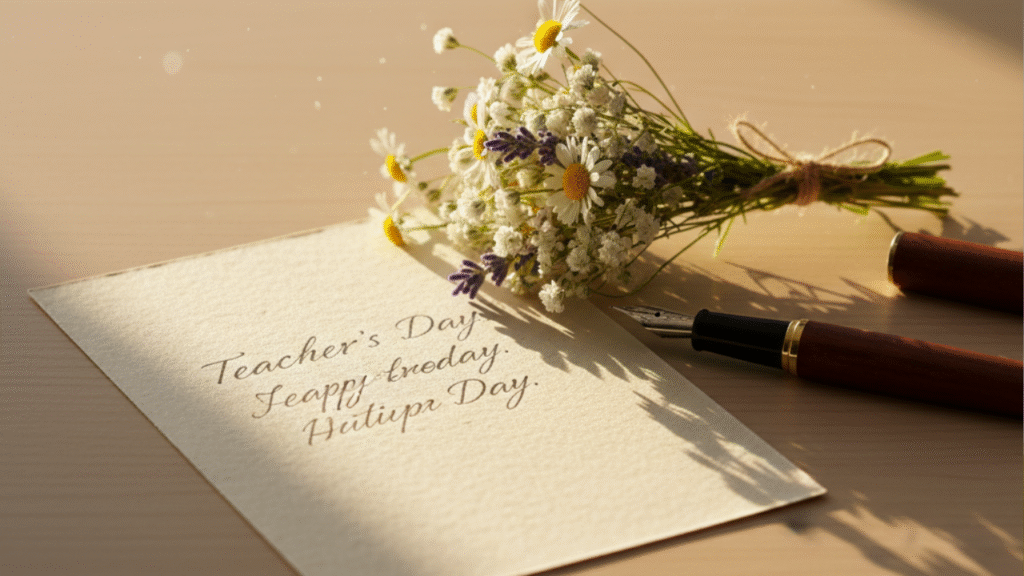 Teacher's Day
Feappy enoday.
Hutiupr Day.